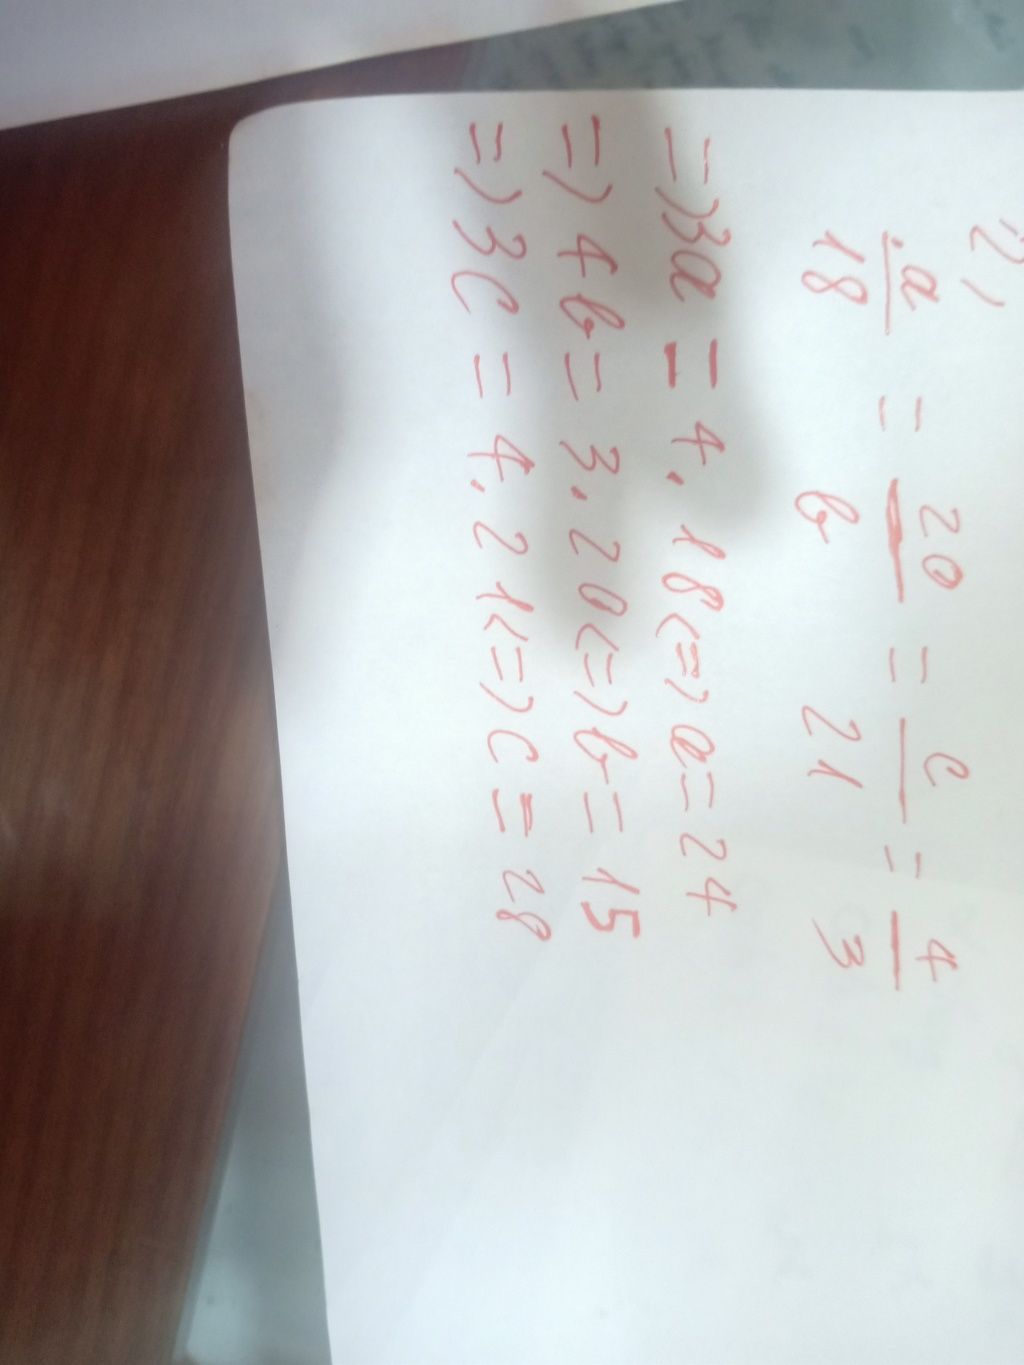 2)
a/18 = 20/b = c/21 = 4/3
=> 3a = 4.18 <=> a = 24
=> 4b = 3.20 <=> b = 15
=> 3c = 4.21 <=> c = 28